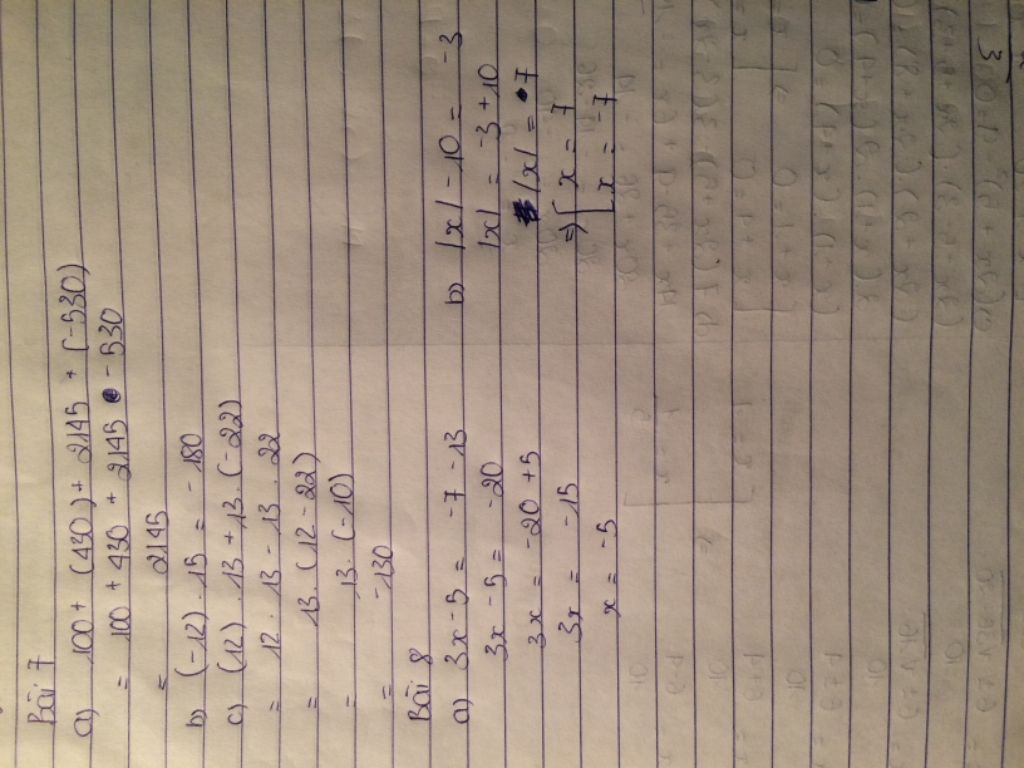 Bài 7
a) 100 + (430) + 2145 + (-530)
= 100 + 430 + 2145 - 530
= 2145
b) (-12) . 15 = - 180
c) (12) . 13 + 13 . (-22)
= 12 . 13 - 13 . 22
= 13 . (12 - 22)
= 13 . (-10)
= -130
Bài 8
a) 3x - 5 = -7 - 13
3x - 5 = -20
3x = -20 + 5
3x = -15
x = -5
b) |x| - 10 = -3
|x| = -3 + 10
|x| = 7
=> [ x = 7
[ x = -7